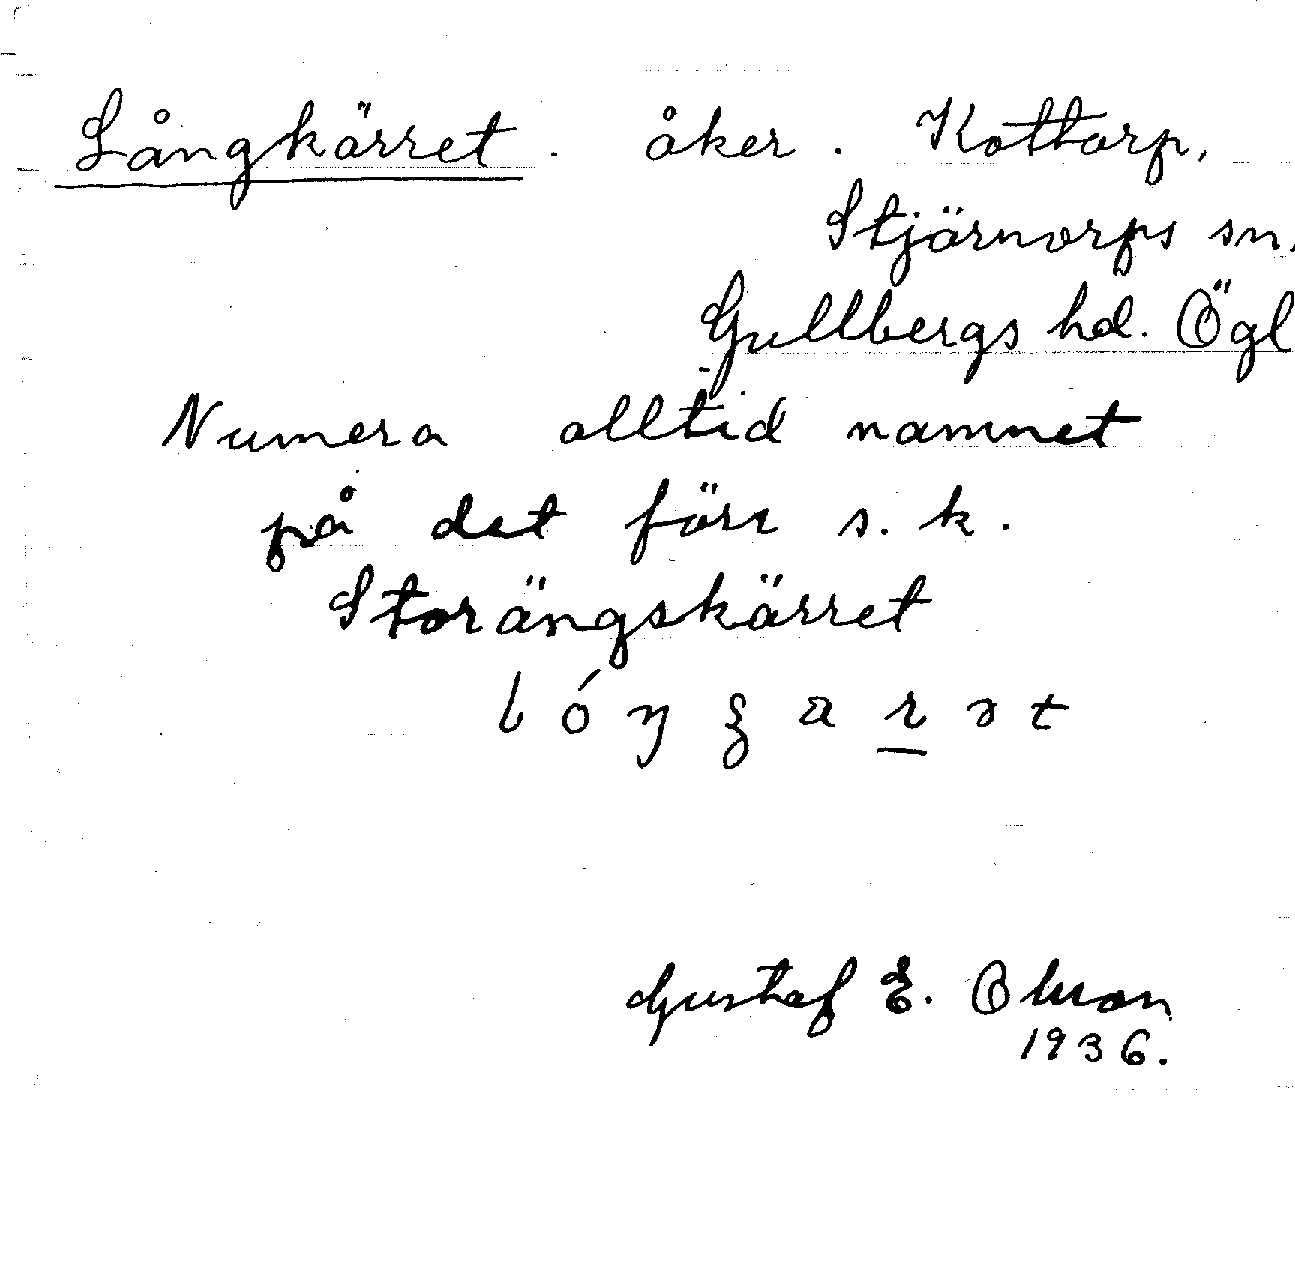 Långkärret. åker. Kottorp,
Stjärnorps sn.
Gullbergs hd. Ögl
Numera alltid namnet
på det förr s.k.
Storängskärret
Gustaf E. Olson
1936.